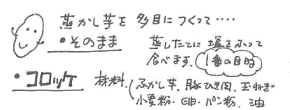 蒸かし芋を多目につくって‥‥
・そのまま 蒸したてに塩をふって
食べます。1番の目的
・コロッケ 材料(ふかし芋、豚ひき肉、玉ねぎ
小麦粉、卵、パン粉、油